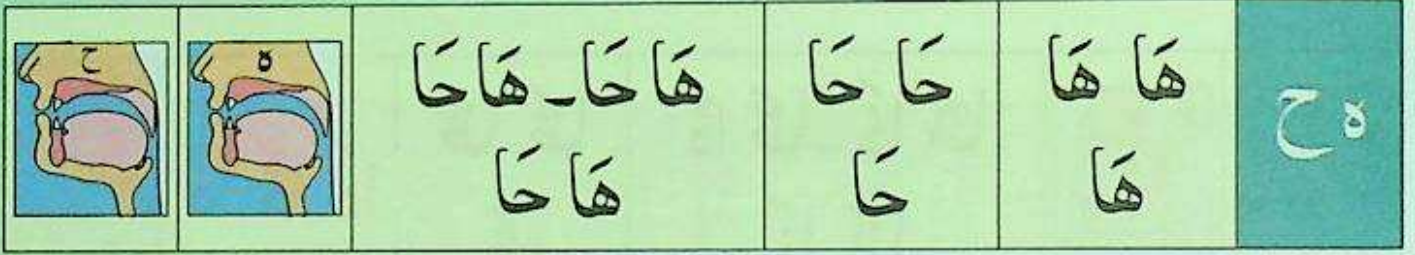 ه ح
هَا هَا
هَا
حَا حَا
حَا
هَا حَا ـ هَا حَا
هَا حَا
ه
ح